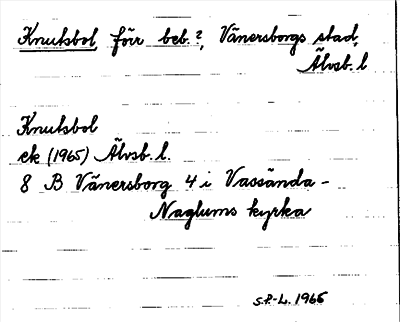 Knutsbol, förr beb.?, Vänersborgs stad,
Älvsb. l
Knutsbol
ek (1965) Älvsb. l.
8 B Vänersborg 4 i Vassända -
Naglums kyrka
S.P-L. 1965